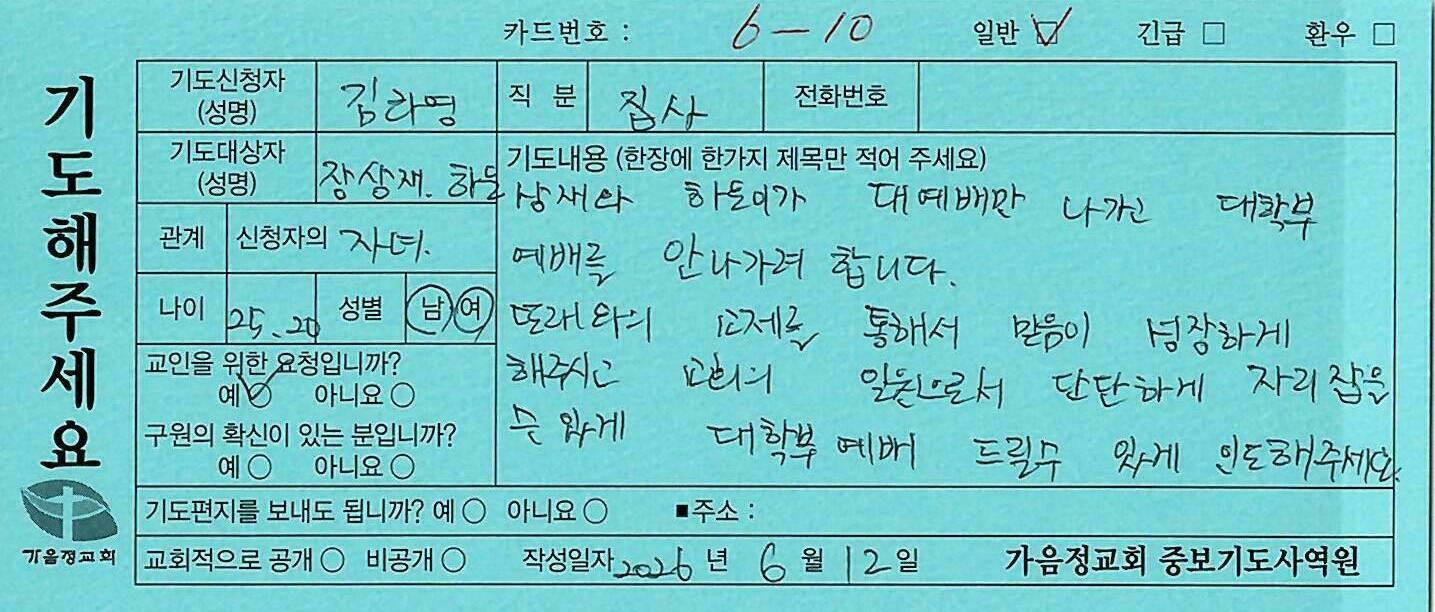 카드번호 : 6-10 일반 ☑ 긴급 □ 환우 □
기도해주세요
기도신청자 (성명) 김하영 직 분 집사 전화번호
기도대상자 (성명) 장상재. 하돈
관계 신청자의 자녀.
나이 25.20 성별 남 여
교인을 위한 요청입니까?
예 ☑ 아니요 ○
구원의 확신이 있는 분입니까?
예 ○ 아니요 ○
기도내용 (한장에 한가지 제목만 적어 주세요)
상재와 하돈이가 대예배만 나가고 대학부
예배를 안나가려 합니다.
또래와의 교제를 통해서 믿음이 성장하게
해주시고 교회의 일꾼으로서 단단하게 자리잡을
수 있게 대학부 예배 드릴수 있게 인도해주세요.
기도편지를 보내도 됩니까? 예 ○ 아니요 ○ ■주소 :
교회적으로 공개 ○ 비공개 ○ 작성일자 2026 년 6 월 12 일 가음정교회 중보기도사역원
가음정교회